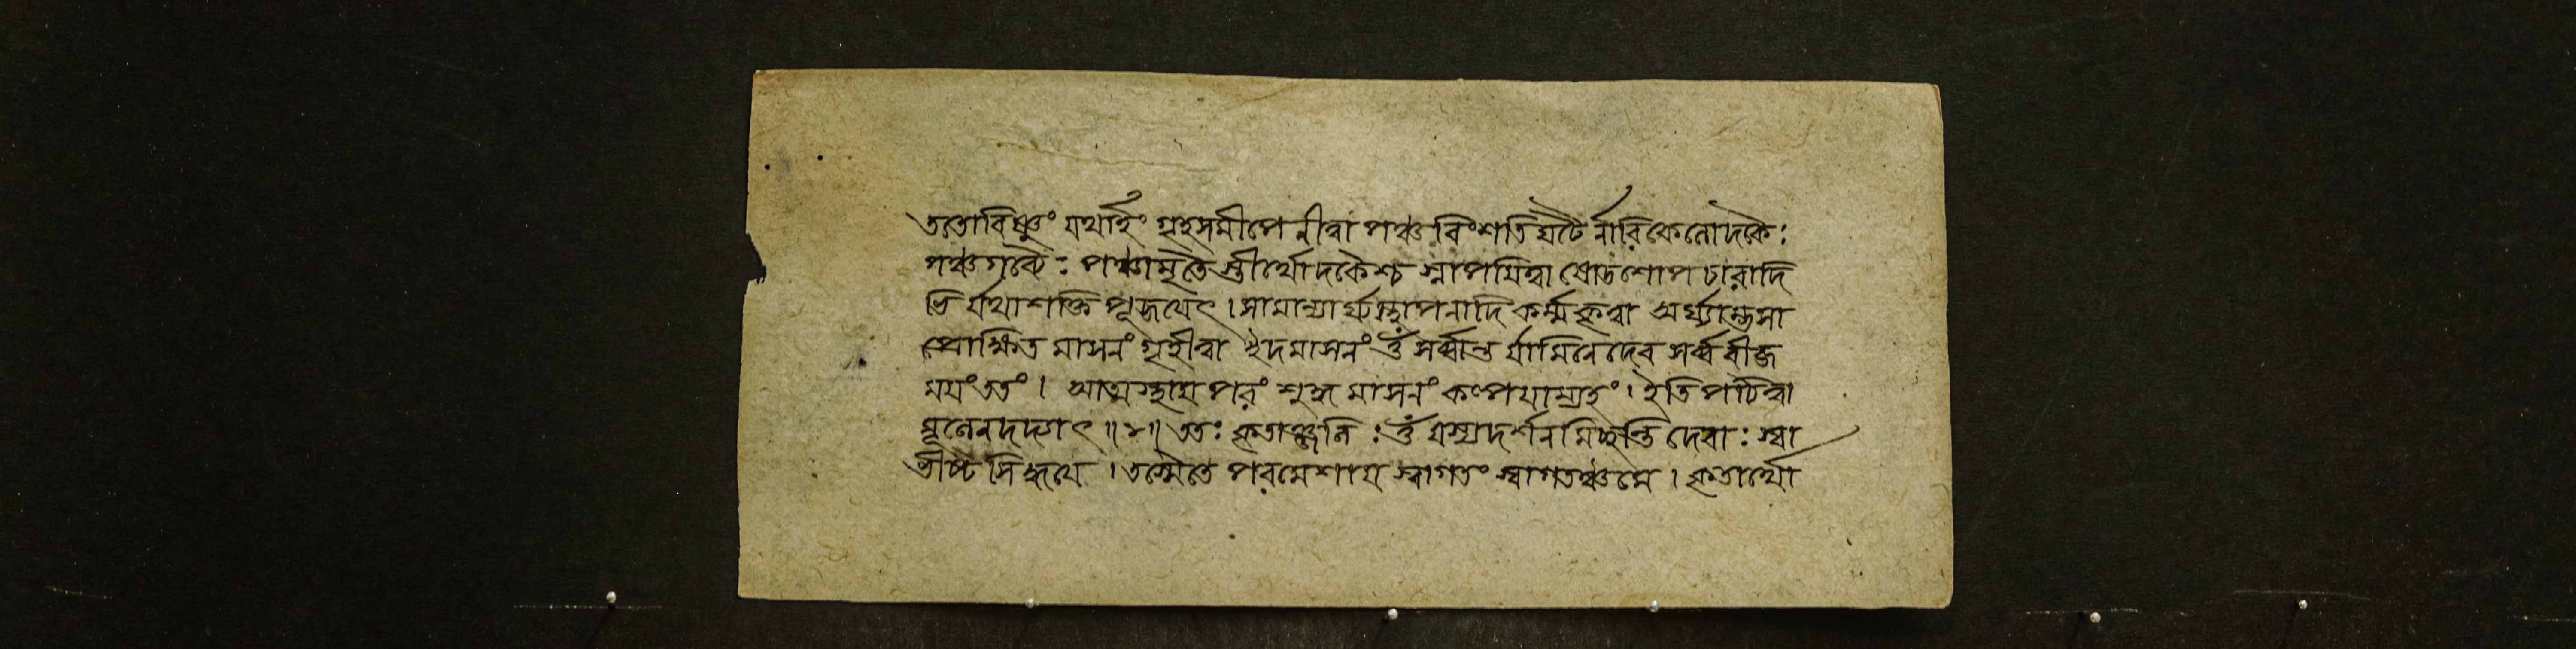 ততো বিষ্ণুং যথার্হং গৃহসমীপে নীত্বা পঞ্চবিংশতি ঘটৈ র্নারিকেলোদকৈঃ
পঞ্চগব্যৈঃ পঞ্চামৃতৈ স্তীর্থোদকৈশ্চ স্নাপয়িত্বা ষোডশোপচারাদি
ভি র্যথাশক্তি পূজয়েৎ । সামান্যার্ঘ্যস্থাপনাদি কর্ম্মকৃত্বা অর্ঘ্যাম্ভসা
প্রোক্ষিত মাসনং গৃহীত্বা ইদমাসনং ওঁ সর্ব্বান্ত র্যামিনে দেব সর্ব্ববীজ
ময়ং ততং । আত্মস্থায় পরং শুদ্ধ মাসনং কল্পয়াম্যহং । ইতি পঠিত্বা
মূলেন দদ্যাৎ ॥ ৺ ॥ ততঃ কৃতাঞ্জলিঃ ওঁ যস্য দর্শন মিচ্ছন্তি দেবাঃ স্বা
ভীষ্ট সিদ্ধয়ে । তস্মৈ তে পরমেশায় স্বাগতং স্বাগতঞ্চ মে । কৃতার্থো